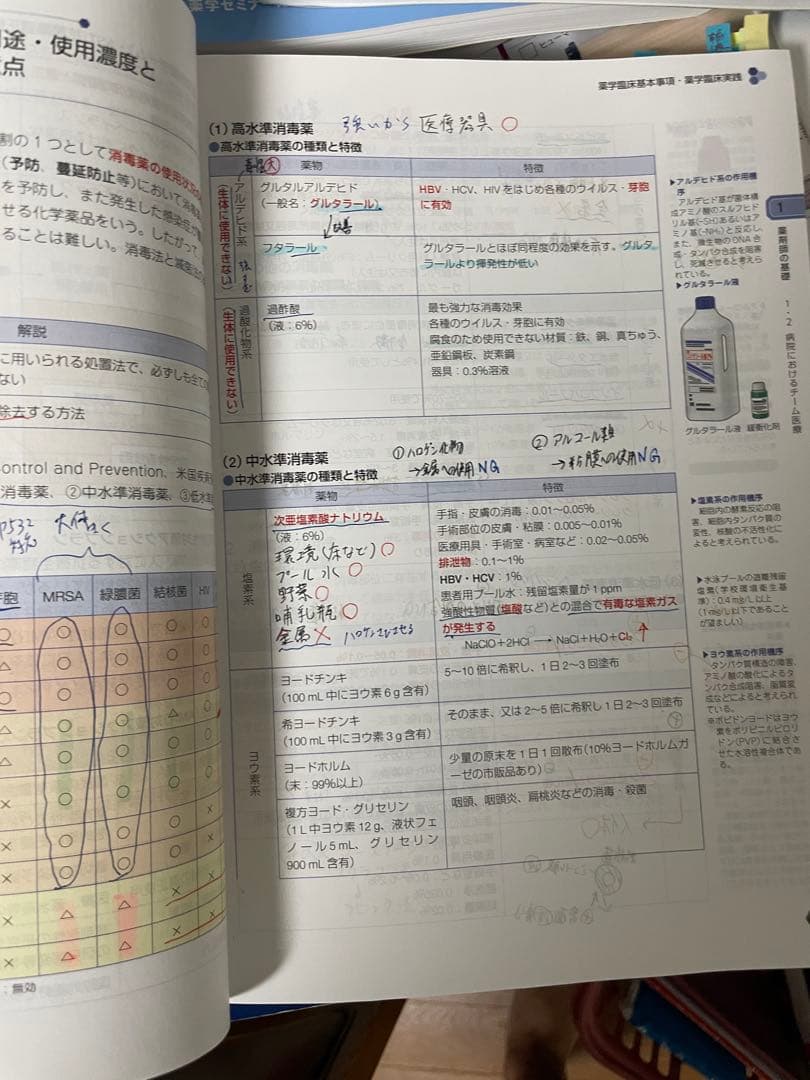 薬学ゼミナ
途・使用濃度と
点
割の1つとして消毒薬の使用
(予防、蔓延防止等)において消毒
を予防し、また発生した感染症
せる化学薬品をいう。したがって、
ることは難しい。消毒法と滅菌法の
解説
に用いられる処置法で、必ずしも全ての
ない
除去する方法
ontrol and Prevention、米国疾
消毒薬、②中水準消毒薬、③低水準
芽胞
MRSA
緑膿菌
結核菌
HIV
:無効
薬学臨床基本事項・薬学臨床実践
(1)高水準消毒薬
強いから 医療器具○
●高水準消毒薬の種類と特徴
毒性大
薬物
特徴
アルデヒド系
(生体に使用できない)
グルタルアルデヒド
(一般名:グルタラール)
HBV・HCV、HIVをはじめ各種のウイルス・芽胞
に有効
↓改善
フタラール
グルタラールとほぼ同程度の効果を示す。グルタ
ラールより揮発性が低い
過酸化物系
(生体に使用できない)
過酢酸
(液:6%)
最も強力な消毒効果
各種のウイルス・芽胞に有効
腐食のため使用できない材質:鉄、銅、真ちゅう、
亜鉛鋼板、炭素鋼
器具:0.3%溶液
(2)中水準消毒薬
①ハロゲン化物
→金属への使用NG
②アルコール類
→粘膜への使用NG
●中水準消毒薬の種類と特徴
薬物
特徴
塩素系
次亜塩素酸ナトリウム
(液:6%)
環境(床など)○
プール水○
野菜○
哺乳瓶○
金属×
ハロゲンさびさせる
手指・皮膚の消毒:0.01〜0.05%
手術部位の皮膚・粘膜:0.005〜0.01%
医療用具・手術室・病室など:0.02〜0.05%
排泄物:0.1〜1%
HBV・HCV:1%
患者用プール水:残留塩素量が1 ppm
強酸性物質(塩酸など)との混合で有毒な塩素ガス
が発生する
NaClO+2HCl → NaCl+H₂O+Cl₂ ↑
ヨウ素系
ヨードチンキ
(100 mL中にヨウ素6 g含有)
5〜10倍に希釈し、1日2〜3回塗布
希ヨードチンキ
(100 mL中にヨウ素3 g含有)
そのまま、又は2〜5倍に希釈し1日2〜3回塗布
ヨードホルム
(末:99%以上)
少量の原末を1日1回散布(10%ヨードホルムガ
ーゼの市販品あり)
複方ヨード・グリセリン
(1 L中ヨウ素12 g、液状フェ
ノール5 mL、グリセリン
900 mL含有)
咽頭、咽頭炎、扁桃炎などの消毒・殺菌
▶アルデヒド系の作用機
序
アルデヒド基が菌体構
成アミノ酸のスルフヒド
リル基(-SH)あるいはア
ミノ基(-NH₂)と反応し、
また、微生物のDNA合
成・タンパク合成を阻害
し、死滅させると考えら
れている。
▶グルタラール液
グルタラール液
緩衝化剤
▶塩素系の作用機序
細胞内の酵素反応の阻
害、細胞内タンパク質の
変性、核酸の不活性化に
よると考えられている。
▶水泳プールの遊離残留
塩素(学校環境衛生基
準):0.4 mg/L以上
(1 mg/L以下であること
が望ましい)
▶ヨウ素系の作用機序
タンパク質構造の障害、
アミノ酸の酸化によるタ
ンパク合成阻害、脂質変
成などによると考えられ
ている。
※ポビドンヨードはヨウ
素をポリビニルピロリ
ドン(PVP)に結合さ
せた水溶性複合体であ
る。
1
薬剤師の基礎
1・2 病院におけるチーム医療